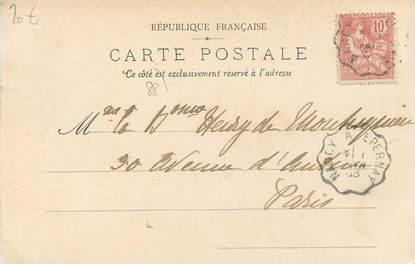 20 €
RÉPUBLIQUE FRANÇAISE
CARTE POSTALE
Ce côté est exclusivement réservé à l'adresse
10
Mme la Bonne Henry de
30 Avenue d'
Paris
NANCY A EPERNAY